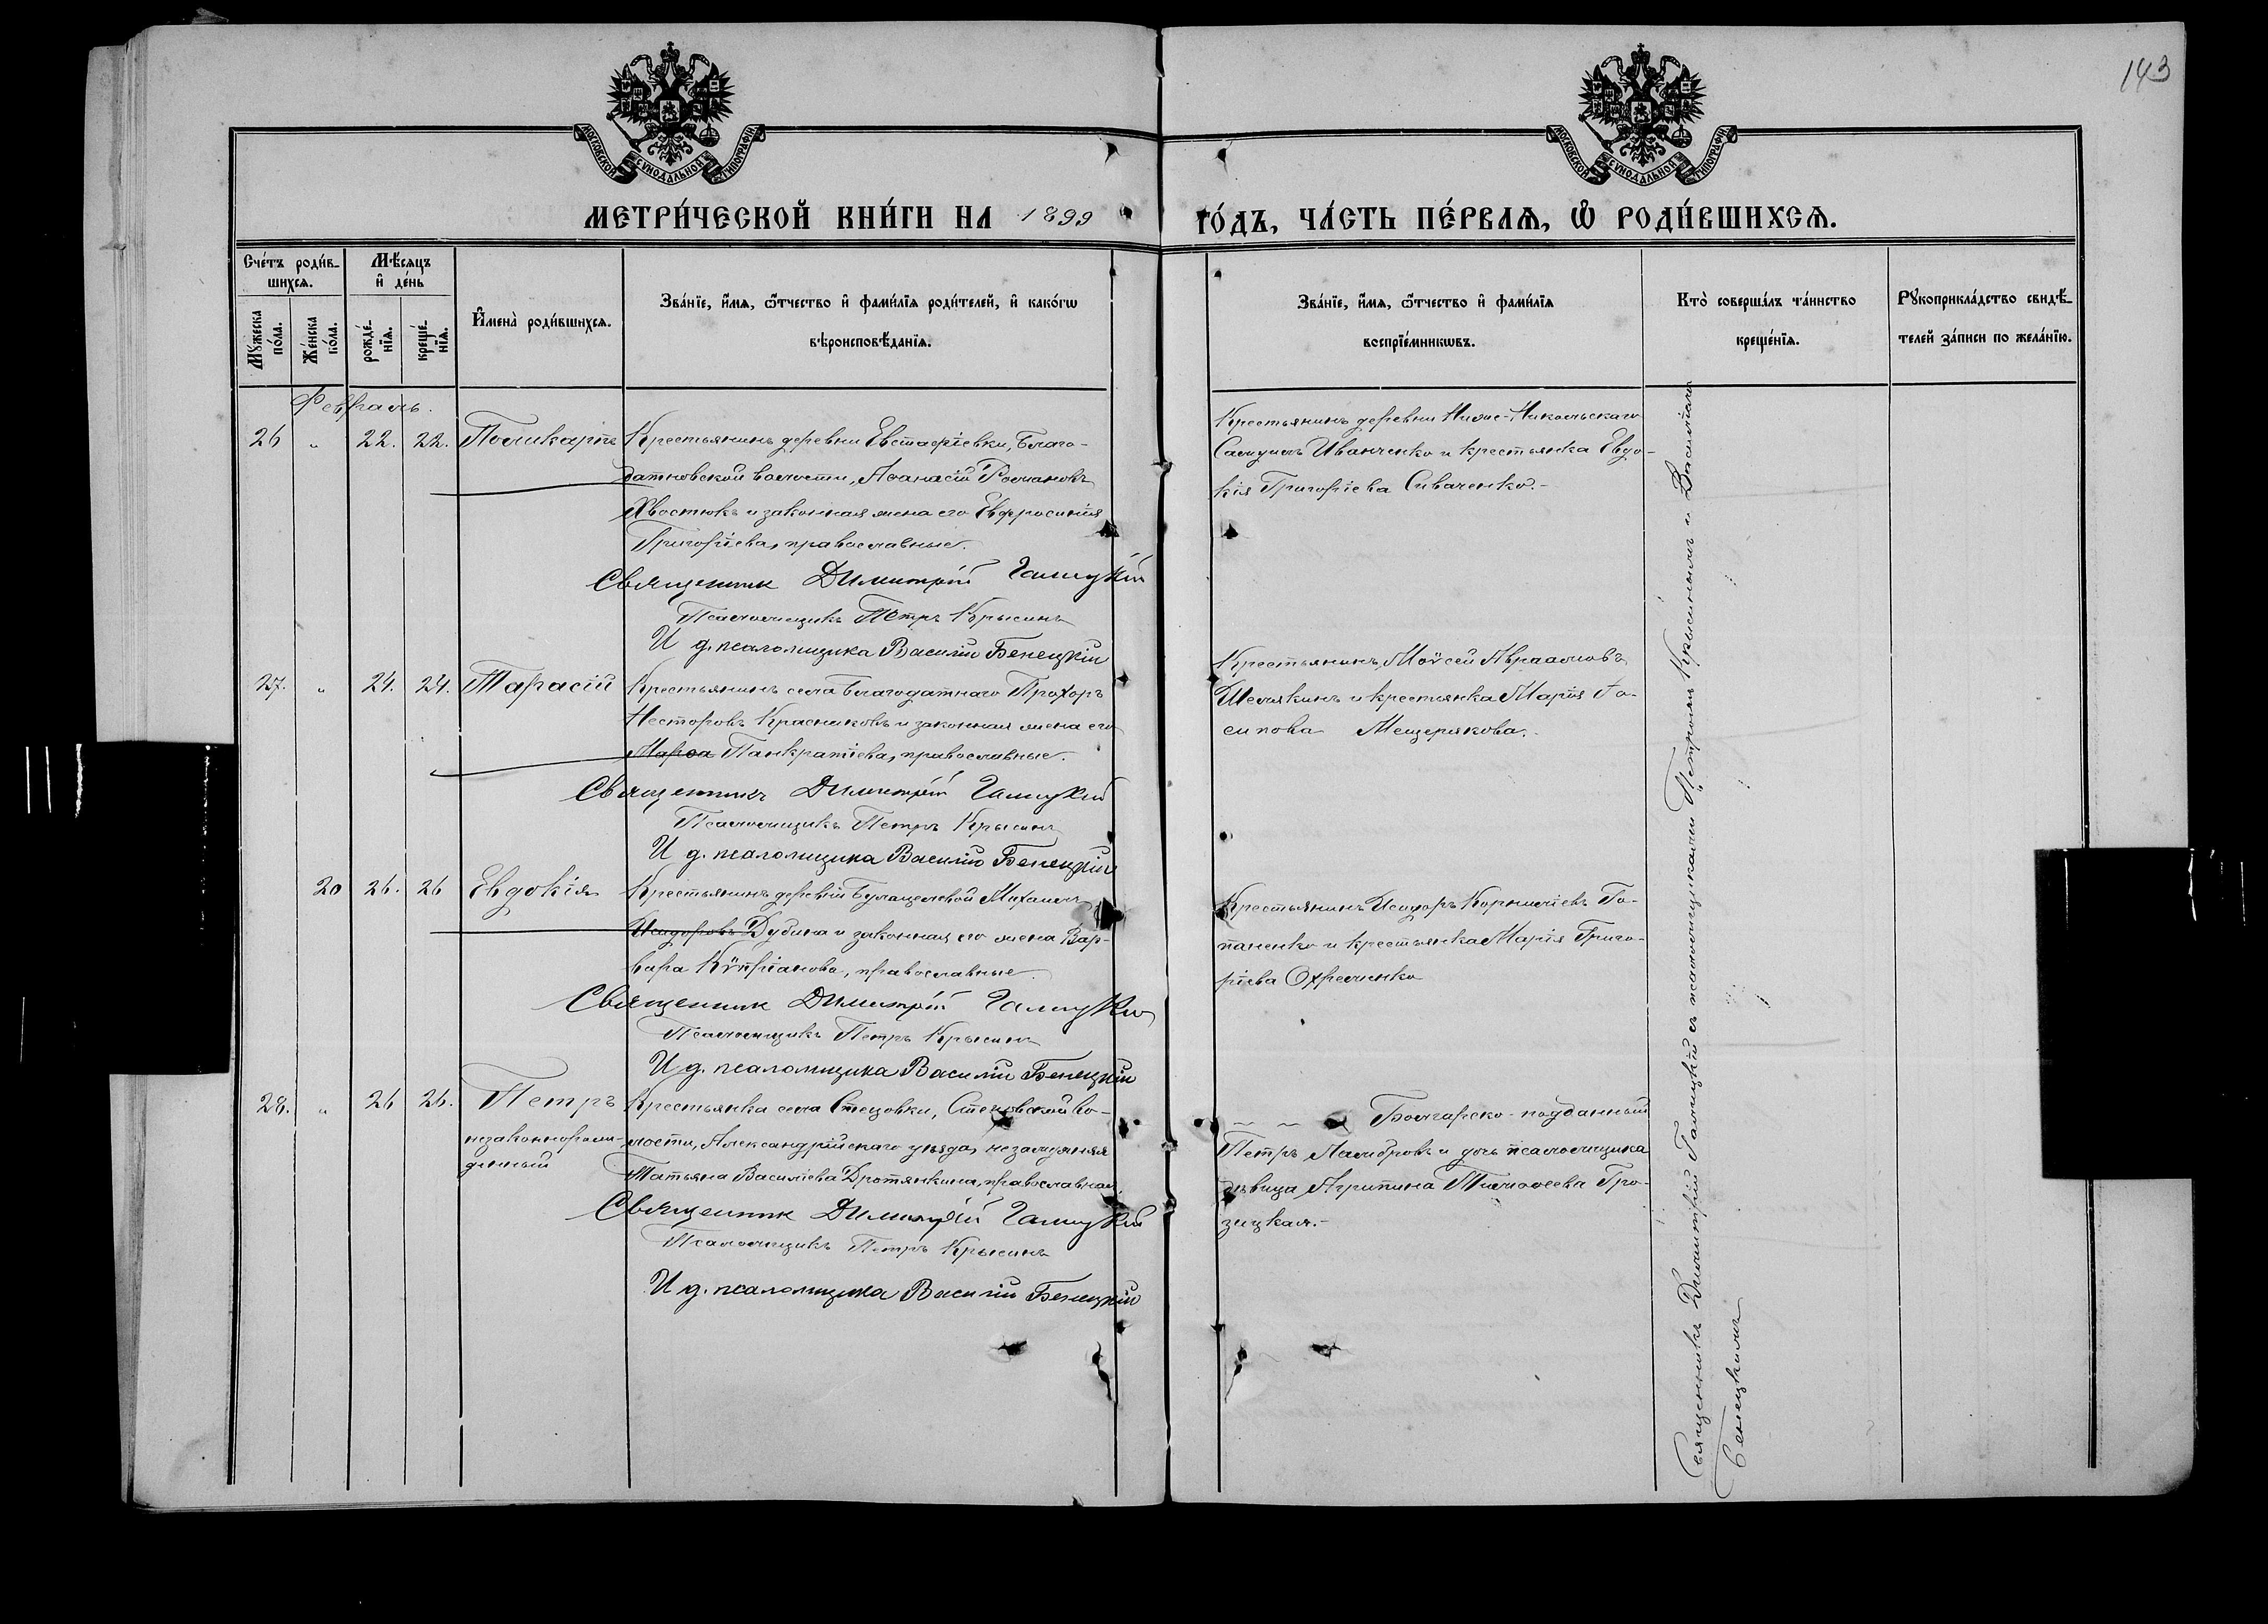 143
МОСКОВСКОЙ СѴНОДАЛЬНОЙ ТИПОГРАФІИ
МОСКОВСКОЙ СѴНОДАЛЬНОЙ ТИПОГРАФІИ
МЕТРИ́ЧЕСКОЙ КНИ́ГИ НА 1899 ГО́ДЪ, ЧА́СТЬ ПЕ́РВАѦ, Ѡ РОДИ́ВШИХСѦ.
Сче́тъ роди́в-
шихсѧ.
Мꙋжеска по́ла.
Же́нска по́ла.
Мѣ́сѧцъ
и҆ де́нь
рожде́-
нїѧ.
креще́-
нїѧ.
И҆мена̀ роди́вшихсѧ.
Зва́нїе, и҆́мѧ, ѻ҆́тчество и҆ фами́лїѧ роди́телей, и҆ како́гѡ
вѣроисповѣ́данїѧ.
Зва́нїе, и҆́мѧ, ѻ҆́тчество и҆ фами́лїѧ
воспрїе́мникѡвъ.
Кто̀ соверша́лъ та́инство
креще́нїѧ.
Рꙋкоприкла́дство свидѣ́-
телей за́писи по жела́нїю.
Февраль.
26 " 22. 22. Поликарпъ Крестьянинъ деревни Евстафіевки, Благо-
датновской волости, Аѳанасій Романовъ
Хвостюкъ и законная жена его Евфросинія
Григоріева, православные.
Священник Димитрій Галицкій
Псаломщикъ Петръ Крысинъ
И д. псаломщика Василій Бенецкій
Крестьянинъ деревни Ново-Никольскаго
Самуилъ Иванченко и крестьянка Евдо-
кія Григоріева Сиваченко.-
27. " 24. 24. Тарасій Крестьянинъ села Благодатнаго Прохоръ
Несторовъ Красниковъ и законная жена его
Марѳа Панкратіева, православные.
Священникъ Димитрій Галицкій
Псаломщикъ Петръ Крысинъ
И д. псаломщика Василій Бенецкій
Крестьянинъ Моѵсей Авраамовъ
Шелякинъ и крестьянка Марія Іо-
сипова Мещерякова.
20 26. 26 Евдокія Крестьянинъ деревни Булацеловой Михаилъ
Исидоровъ Дубина и законная его жена Вар-
вара Кѵпріанова, православные.
Священник Димитрій Галицкій
Псаломщикъ Петръ Крысинъ
И д. псаломщика Василій Бенецкій
Крестьянинъ Исидоръ Корниліевъ По-
паненко и крестьянка Марія Григо-
ріева Охременко
28. " 26 26. Петръ Крестьянка села Стецовки, Стецовской во-
незаконнорож- лости, Александрійскаго уѣзда, незамужняя
денный Татьяна Василіева Дротянкина, православная.
Священник Димитрій Галицкій
Псаломщикъ Петръ Крысинъ
И д. псаломщика Василій Бенецкій
Болгарско-подданный
Петръ Ламбровъ и дочь псаломщика
дѣвица Агрипина Тимоѳеева Гро-
зицкая.-
Священникъ Димитрій Галицкій съ псаломщиками Петромъ Крысинымъ и Василіемъ
Бенецкимъ